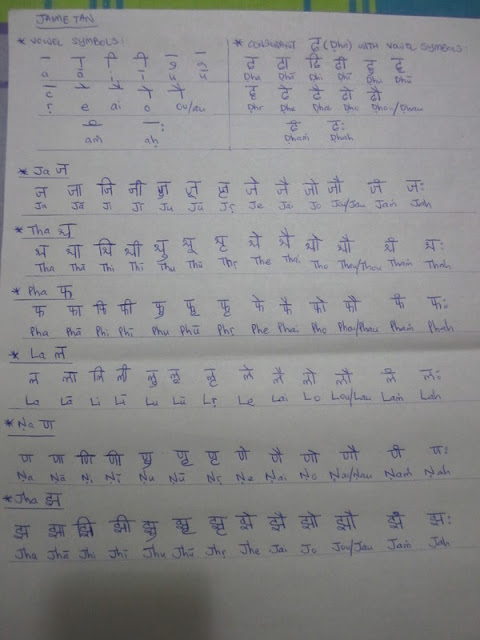 JAIME TAN
* VOWEL SYMBOLS:
* CONSONANT ढ (Ḍha) WITH VOWEL SYMBOLS:
a ā i ī u ū
ṛ e ai o au/au
aṁ aḥ
ढ ढा ढि ढी ढु ढू
Ḍha Ḍhā Ḍhi Ḍhī Ḍhu Ḍhū
ढृ ढे ढै ढो ढौ
Ḍhṛ Ḍhe Ḍhai Ḍho
ढं ढः
Ḍhaṁ Ḍhaḥ
* Ja ज
ज जा जि जी जु जू जृ जे जै जो जौ जं जः
Ja Jā Ji Jī Ju Jū Jṛ Je Jai Jo Jau/Jau Jaṁ Jaḥ
* Tha थ
थ था थि थी थु थू थृ थे थै थो थौ थं थः
Tha Thā Thi Thī Thu Thū Thṛ The Thai Tho Thau/Thau Thaṁ Thaḥ
* Pha फ
फ फा फि फी फु फू फृ फे फै फो फौ फं फः
Pha Phā Phi Phī Phu Phū Phṛ Phe Phai Pho Phau/Phau Phaṁ Phaḥ
* La ल
ल ला लि ली लु लू लृ ले लै लो लौ लं लः
La Lā Li Lī Lu Lū Lṛ Le Lai Lo Lau/Lau Laṁ Laḥ
* Ṇa ण
ण णा णि णी णु णू णृ णे णै णो णौ णं णः
Ṇa Ṇā Ṇi Ṇī Ṇu Ṇū Ṇṛ Ṇe Ṇai Ṇo Ṇau/Ṇau Ṇaṁ Ṇaḥ
* Jha झ
झ झा झि झी झु झू झृ झे झै झो झौ झं झः
Jha Jhā Jhi Jhī Jhu Jhū Jhṛ Jhe Jai Jo Jau/Jau Jaṁ Jaḥ